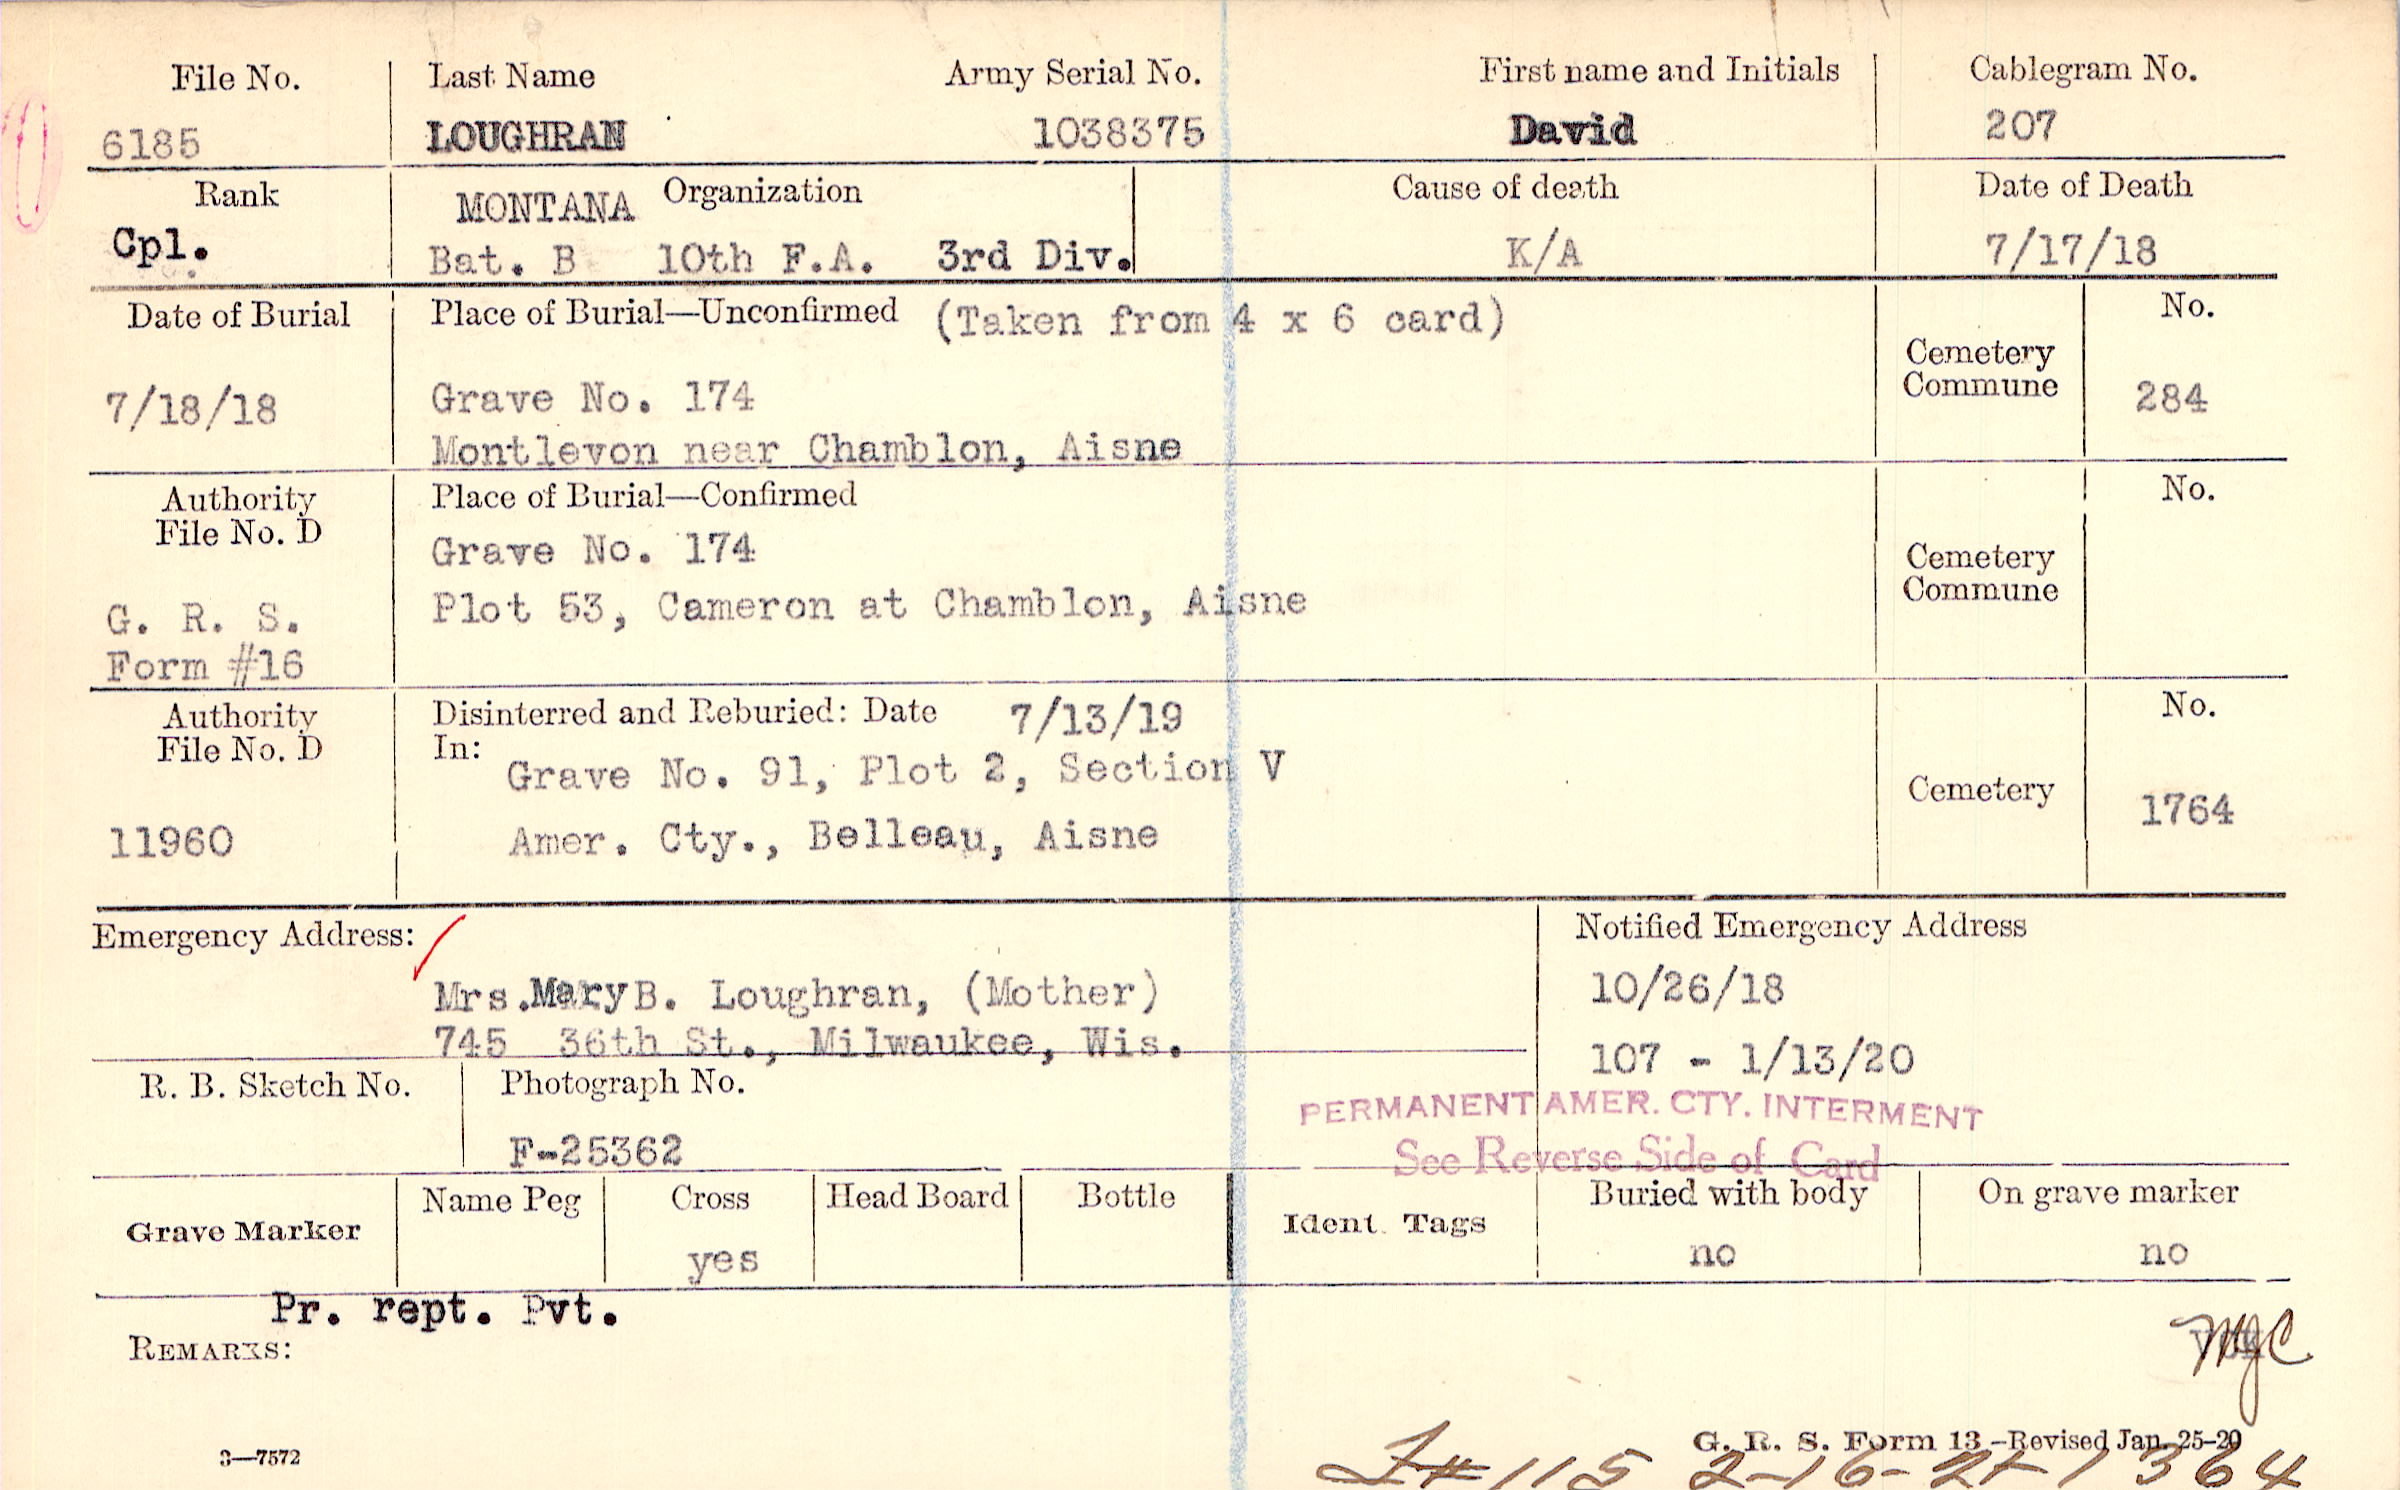 File No. Last Name Army Serial No. First name and Initials Cablegram No.
6185 LOUGHRAN 1038375 David 207
Rank MONTANA Organization Cause of death Date of Death
Cpl. Bat. B 10th F.A. 3rd Div. K/A 7/17/18
Date of Burial Place of Burial—Unconfirmed (Taken from 4 x 6 card) No.
Cemetery
Commune
7/18/18 Grave No. 174 284
Montlevon near Chamblon, Aisne
Authority Place of Burial—Confirmed No.
File No. D
Grave No. 174 Cemetery
Commune
G. R. S. Plot 53, Cameron at Chamblon, Aisne
Form #16
Authority Disinterred and Reburied: Date 7/13/19 No.
File No. D In:
Grave No. 91, Plot 2, Section V Cemetery 1764
11960 Amer. Cty., Belleau, Aisne
Emergency Address: Notified Emergency Address
Mrs. Mary B. Loughran, (Mother) 10/26/18
745 36th St., Milwaukee, Wis. 107 - 1/13/20
R. B. Sketch No. Photograph No. PERMANENT AMER. CTY. INTERMENT
F-25362 See Reverse Side of Card
Grave Marker Name Peg Cross Head Board Bottle Ident. Tags Buried with body On grave marker
yes no no
Pr. rept. Pvt.
REMARKS:
MJC
3—7572 G. R. S. Form 13 -Revised Jan. 25-20
#115 2-16-21 1364